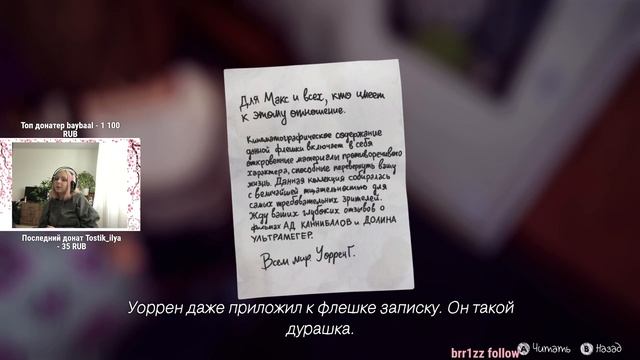 Для Макс и всех, кто имеет
к этому отношение.
Кинематографическое содержание
данной флешки включает в себя
откровенные материалы противоречивого
характера, способные перевернуть вашу
жизнь. Данная коллекция собиралась
с величайшей тщательностью для
самых требовательных зрителей.
Жду ваших глубоких отзывов о
фильмах АД КАННИБАЛОВ и ДОЛИНА
УЛЬТРАМЕГЕР.
Всем мир Уоррен Г.
Топ донатер baybaal - 1 100
RUB
Последний донат Tostik_ilya
- 35 RUB
Уоррен даже приложил к флешке записку. Он такой
дурашка.
brr1zz follow
A Читать B Назад